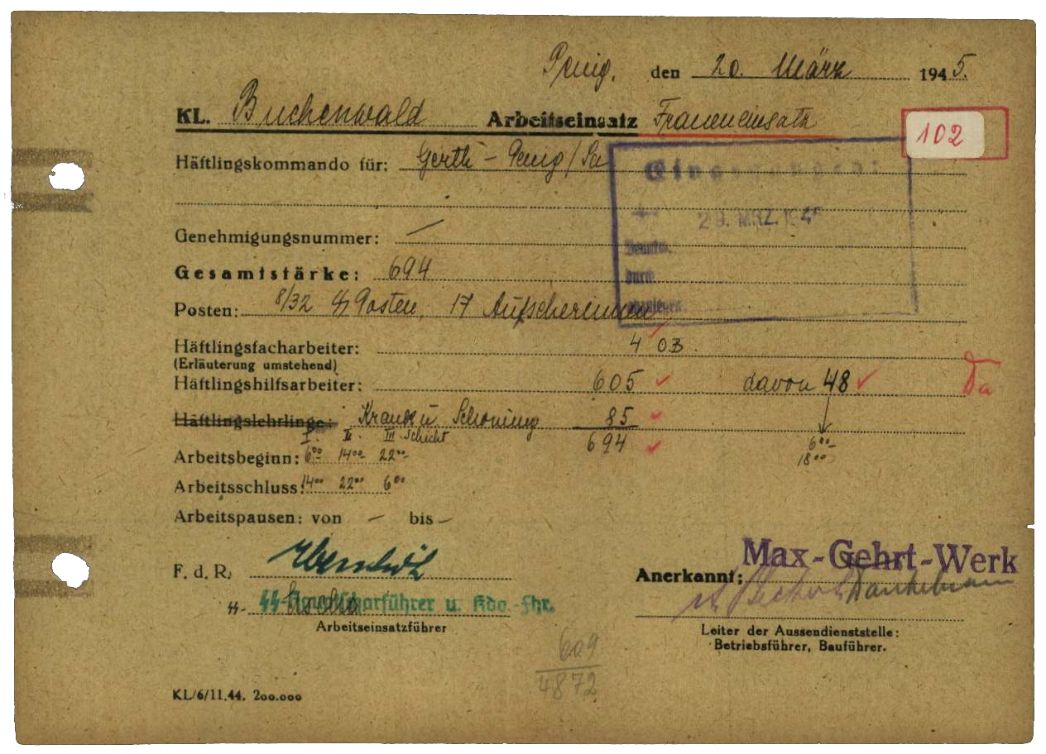 Penig, den 20. März 1945.
KL. Buchenwald Arbeitseinsatz Fraueneinsatz
102
Häftlingskommando für: Gerth - Penig/Sa
29. MRZ. 1945
Genehmigungsnummer: —
Gesamtstärke: 694
Posten: 8/32 SS Posten, 17 Aufseherinnen
Häftlingsfacharbeiter: 4 OB
(Erläuterung umstehend)
Häftlingshilfsarbeiter: 605 davon 48
Häftlingslehrlinge: Krank u Schonung 85
I. II. III Schicht 694 6⁰⁰
Arbeitsbeginn: 6⁰⁰ 14⁰⁰ 22⁰⁰ 18⁰⁰
Arbeitsschluss: 14⁰⁰ 22⁰⁰ 6⁰⁰
Arbeitspausen: von — bis —
Max-Gehrt-Werk
F. d. R. Anerkannt:
SS-
Arbeitseinsatzführer
Leiter der Aussendienststelle:
Betriebsführer, Bauführer.
609
4872
KL/6/11.44. 200.000